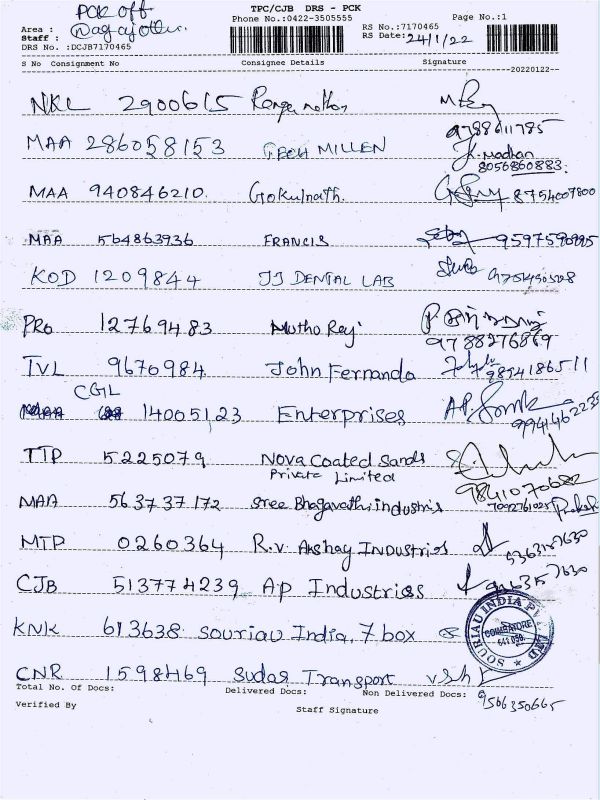 PCK off TPC/CJB DRS - PCK
Area : Phone No.:0422-3505555 Page No.:1
Staff : RS No.:7170465
DRS No. :DCJB7170465 RS Date: 24/1/22
S No Consignment No Consignee Details Signature
20220122
NKL 2900615
9788611785
MAA 286058153 TECH MILLEN K. Madhan
8056860883.
MAA 940846210. Gokulnath. 8754007800
MAA 564863936 FRANCIS
KOD 1209844 JJ DENTAL LAB
PRO 12769483 Mutho Rey
9788276869
TVL 9670984 John Fernando
CGIL
14005123 Enterprises
TTP 5225079 Nova Coated Sands
Private Limited
MAA 563737172 Sree Bhagavathi industris
MTP 0260364 R.V. Akshay Industries
CJB 513774239 Ap Industries
SOURIAU INDIA COIMBATORE
KNK 613638 Souriau India, 7 box
CNR 1598469 Sudas Transport
Total No. Of Docs: Delivered Docs: Non Delivered Docs:
9566350665
Verified By Staff Signature